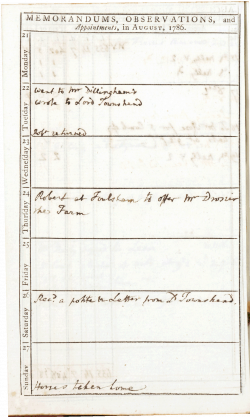 MEMORANDUMS, OBSERVATIONS, and
Appointments, in AUGUST, 1786.
21 Monday
22 Tuesday
went to Mr Dillinghams
wrote to Lord Townshend
returned
23 Wednesday
24 Thursday
Robert at Foulsham to offer Mr Drosier
the Farm
25 Friday
26 Saturday
Recd a polite Letter from Ld Townshend.
Sunday
Horse taken lame